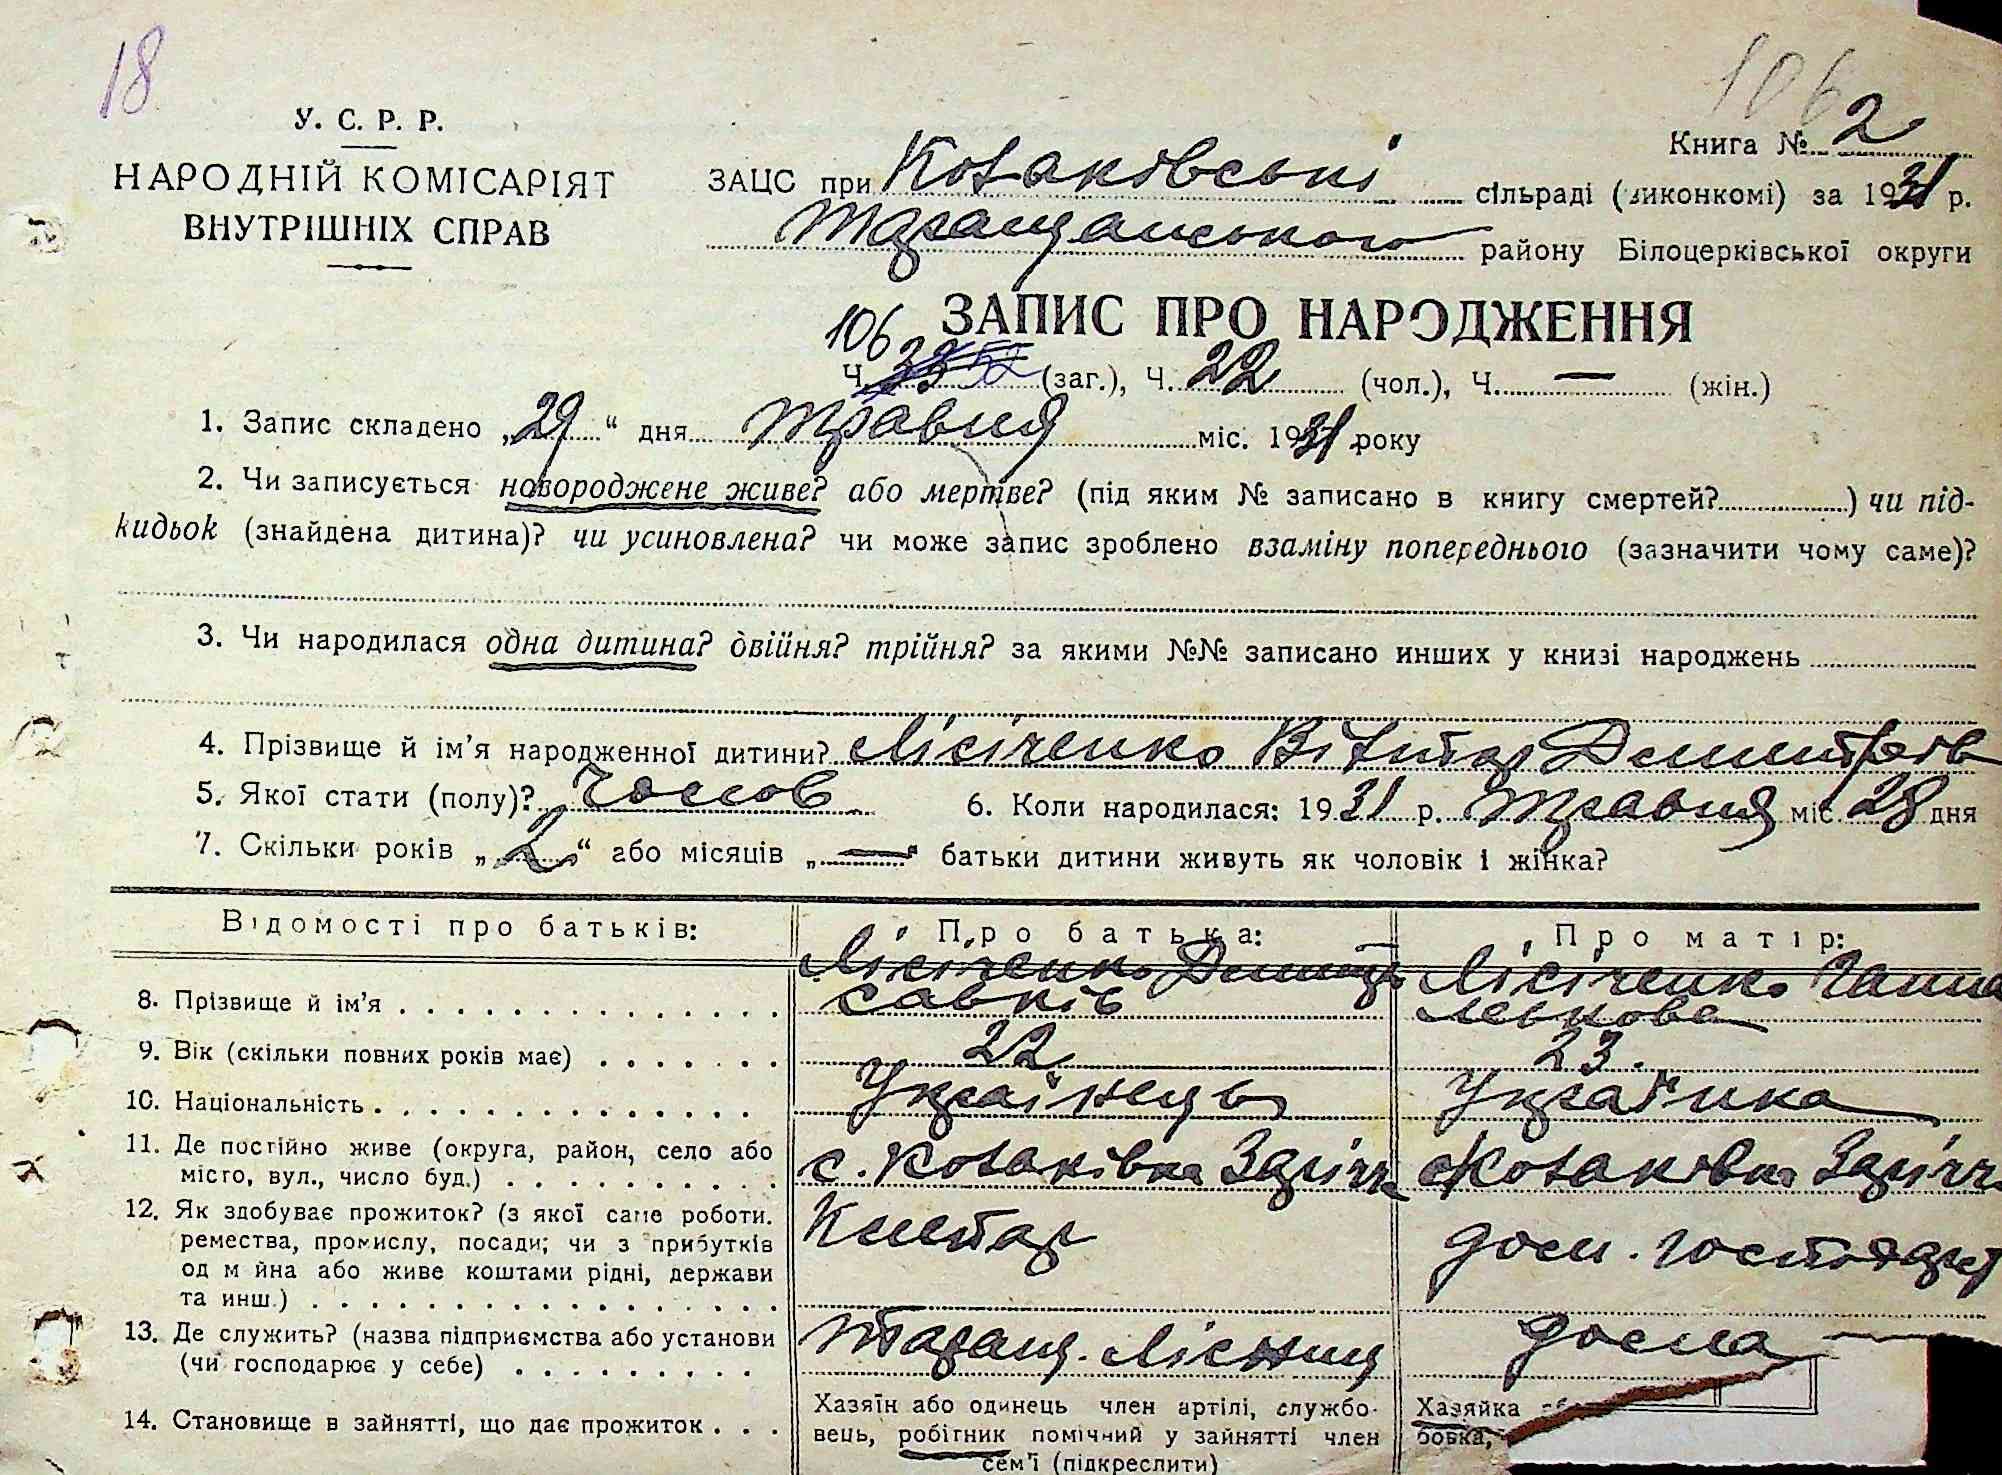 18
106
У. С. Р. Р.
НАРОДНІЙ КОМІСАРІЯТ
ВНУТРІШНІХ СПРАВ
Книга № 2
ЗАЦС при Козаківські сільраді (виконкомі) за 1931 р.
Таращанського району Білоцерківської округи
ЗАПИС ПРО НАРОДЖЕННЯ
106
Ч. 52 (заг.), Ч. 22 (чол.), Ч. — (жін.)
1. Запис складено „29“ дня травня міс. 1931 року
2. Чи записується новороджене живе? або мертве? (під яким № записано в книгу смертей? ) чи під-
кидьок (знайдена дитина)? чи усиновлена? чи може запис зроблено взаміну попереднього (зазначити чому саме)?
3. Чи народилася одна дитина? двійня? трійня? за якими №№ записано инших у книзі народжень
4. Прізвище й ім’я народженної дитини? Лісіченко Віктор Дмитрів
5. Якої стати (полу)? чолов 6. Коли народилася: 1931 р. травня міс 28 дня
7. Скільки років „2“ або місяців „—“ батьки дитини живуть як чоловік і жінка?
Відомості про батьків: Про батька: Про матір:
8. Прізвище й ім’я Лісіченко Дмитр Савків Лісіченко Ганна Лькова
9. Вік (скільки повних років має) 22 23.
10. Національність Українець Українка
11. Де постійно живе (округа, район, село або
місто, вул., число буд.) с. Козаківка Заріччя с. Козаківка Заріччя
12. Як здобуває прожиток? (з якої саме роботи.
ремества, промислу, посади; чи з прибутків
од майна або живе коштами рідні, держави
та инш.) дом. господар
13. Де служить? (назва підприємства або установи
(чи господарює у себе) Таращ. Лісниц дома
14. Становище в зайнятті, що дає прожиток
Хазяїн або одинець член артілі, службо-
вець, робітник помічний у зайнятті член
сем’ї (підкреслити)
Хазяйка
бовка,